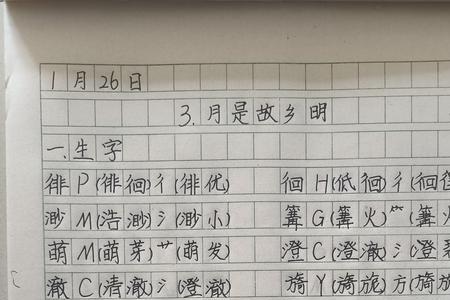 1月26日
3.月是故乡明
一.生字
徘 P(徘徊)彳(徘优) 徊 H(低徊)彳(徊
渺 M(浩渺)氵(渺小) 篝 G(篝火)⺮(篝
萌 M(萌芽)艹(萌发) 澄 C(澄澈)氵(澄
澈 C(清澈)氵(澄澈) 旖 Y(旖旎)方(旖